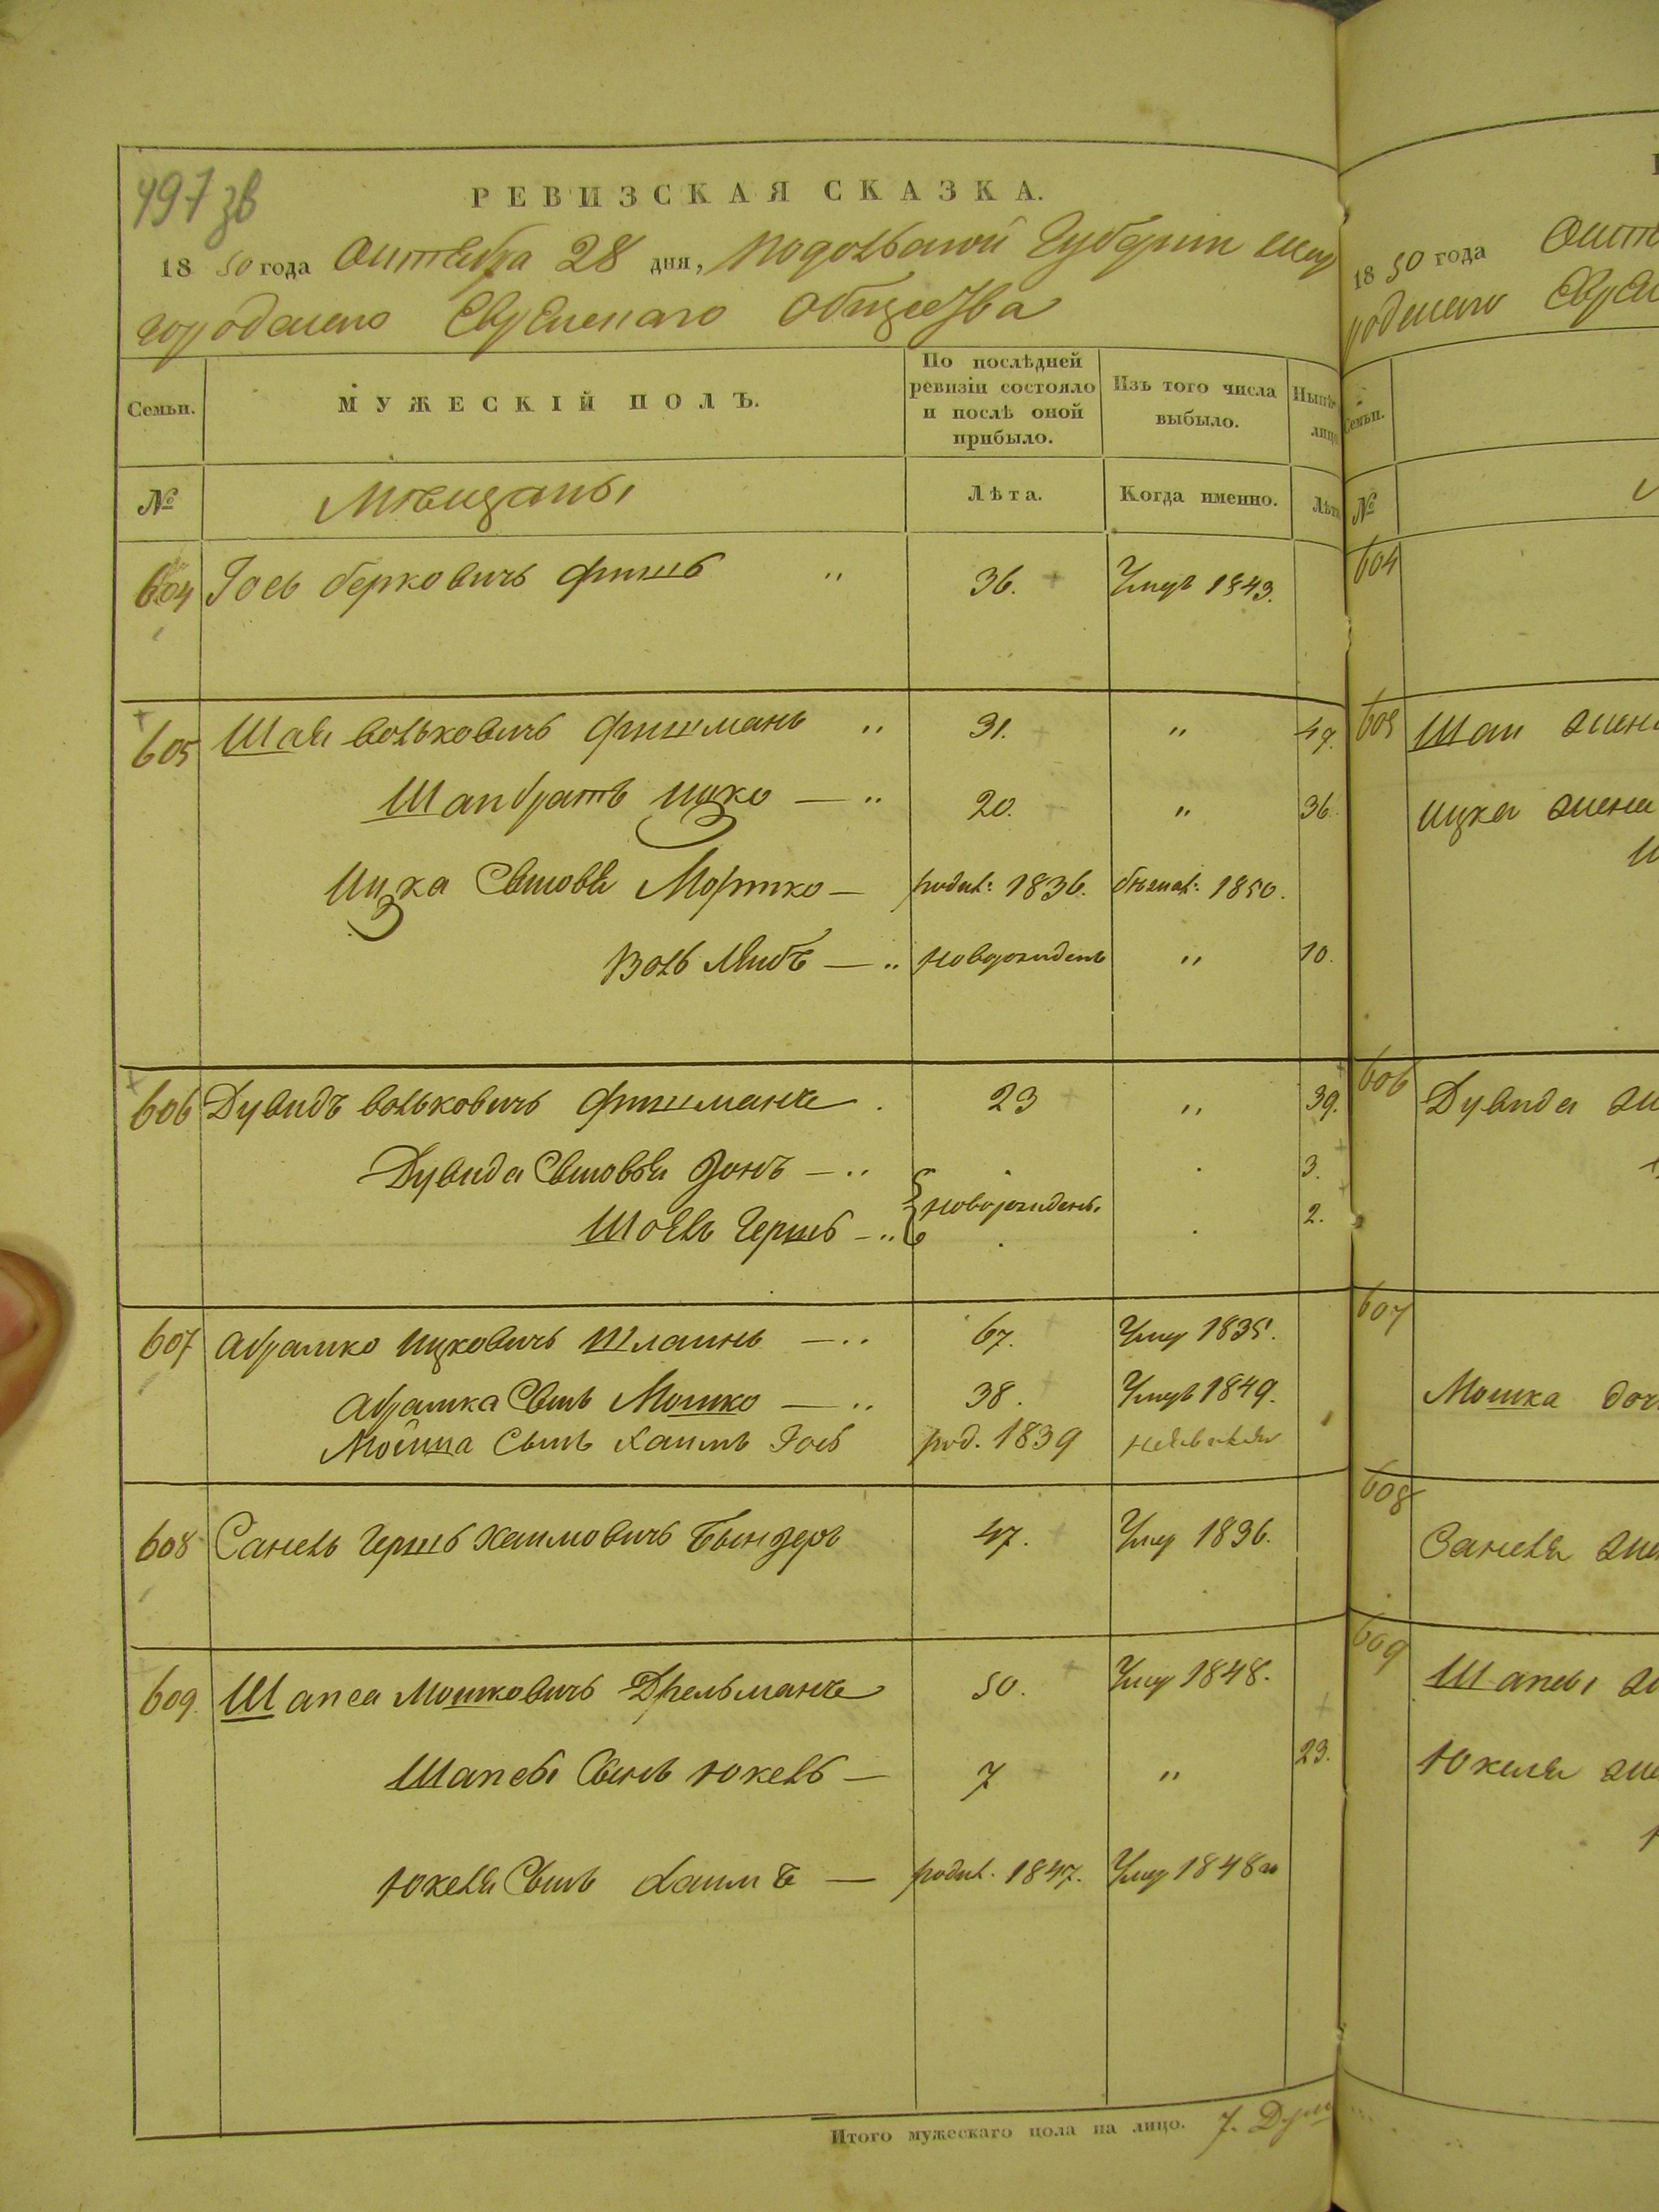 497 зв
РЕВИЗСКАЯ СКАЗКА.
1850 года Октября 28 дня, Подольской Губернии Шар
городскаго Еврейскаго Общества
Семьи.
МУЖЕСКІЙ ПОЛЪ.
По послѣдней
ревизіи состояло
и послѣ оной
прибыло.
Изъ того числа
выбыло.
Нынѣ
лицо
№
Мѣщаны
Лѣта.
Когда именно.
Лѣта
604 Іось Берковичъ Фишъ " 36. Умеръ 1843.
605 Шая Вольковичъ Фишманъ " 31. " 49.
Шаи братъ Ицко — " 20. " 36.
Ицка Сыновья Мортко — родил: 1836. бѣжал: 1850.
Воль Лейбъ — " новорожденъ " 10.
606 Дувидъ Вольковичъ Фишманъ . 23 " 39.
Дувида Сыновья Зонъ — " . . 3.
новорожден.
Шоель Гершъ — " . . 2.
607 Абрамко Ицковичъ Шлаинъ — " 67. Умер 1835.
Абрамка Сынъ Мошко — " 38. Умеръ 1849.
Мошка Сынъ Хаимъ Іось род. 1839
608 Санель Гершъ Хаимовичъ Бындеръ 47. Умер 1836.
609. Шапса Мошковичъ Дрельманъ 50. Умер 1848.
Шапсы Сынъ Юкель — 7 " 23.
Юкеля Сынъ Хаимъ — родил. 1847. Умер 1848 го
Итого мужескаго пола на лицо. 7. Душ
1850 года Окт
родскаго Еврей
Семьи.
№
604
605 Шаи жена
Ицка жена
606 Дувида
607
Мошка доч
608
Санеля
609
Шапсы
Юкеля